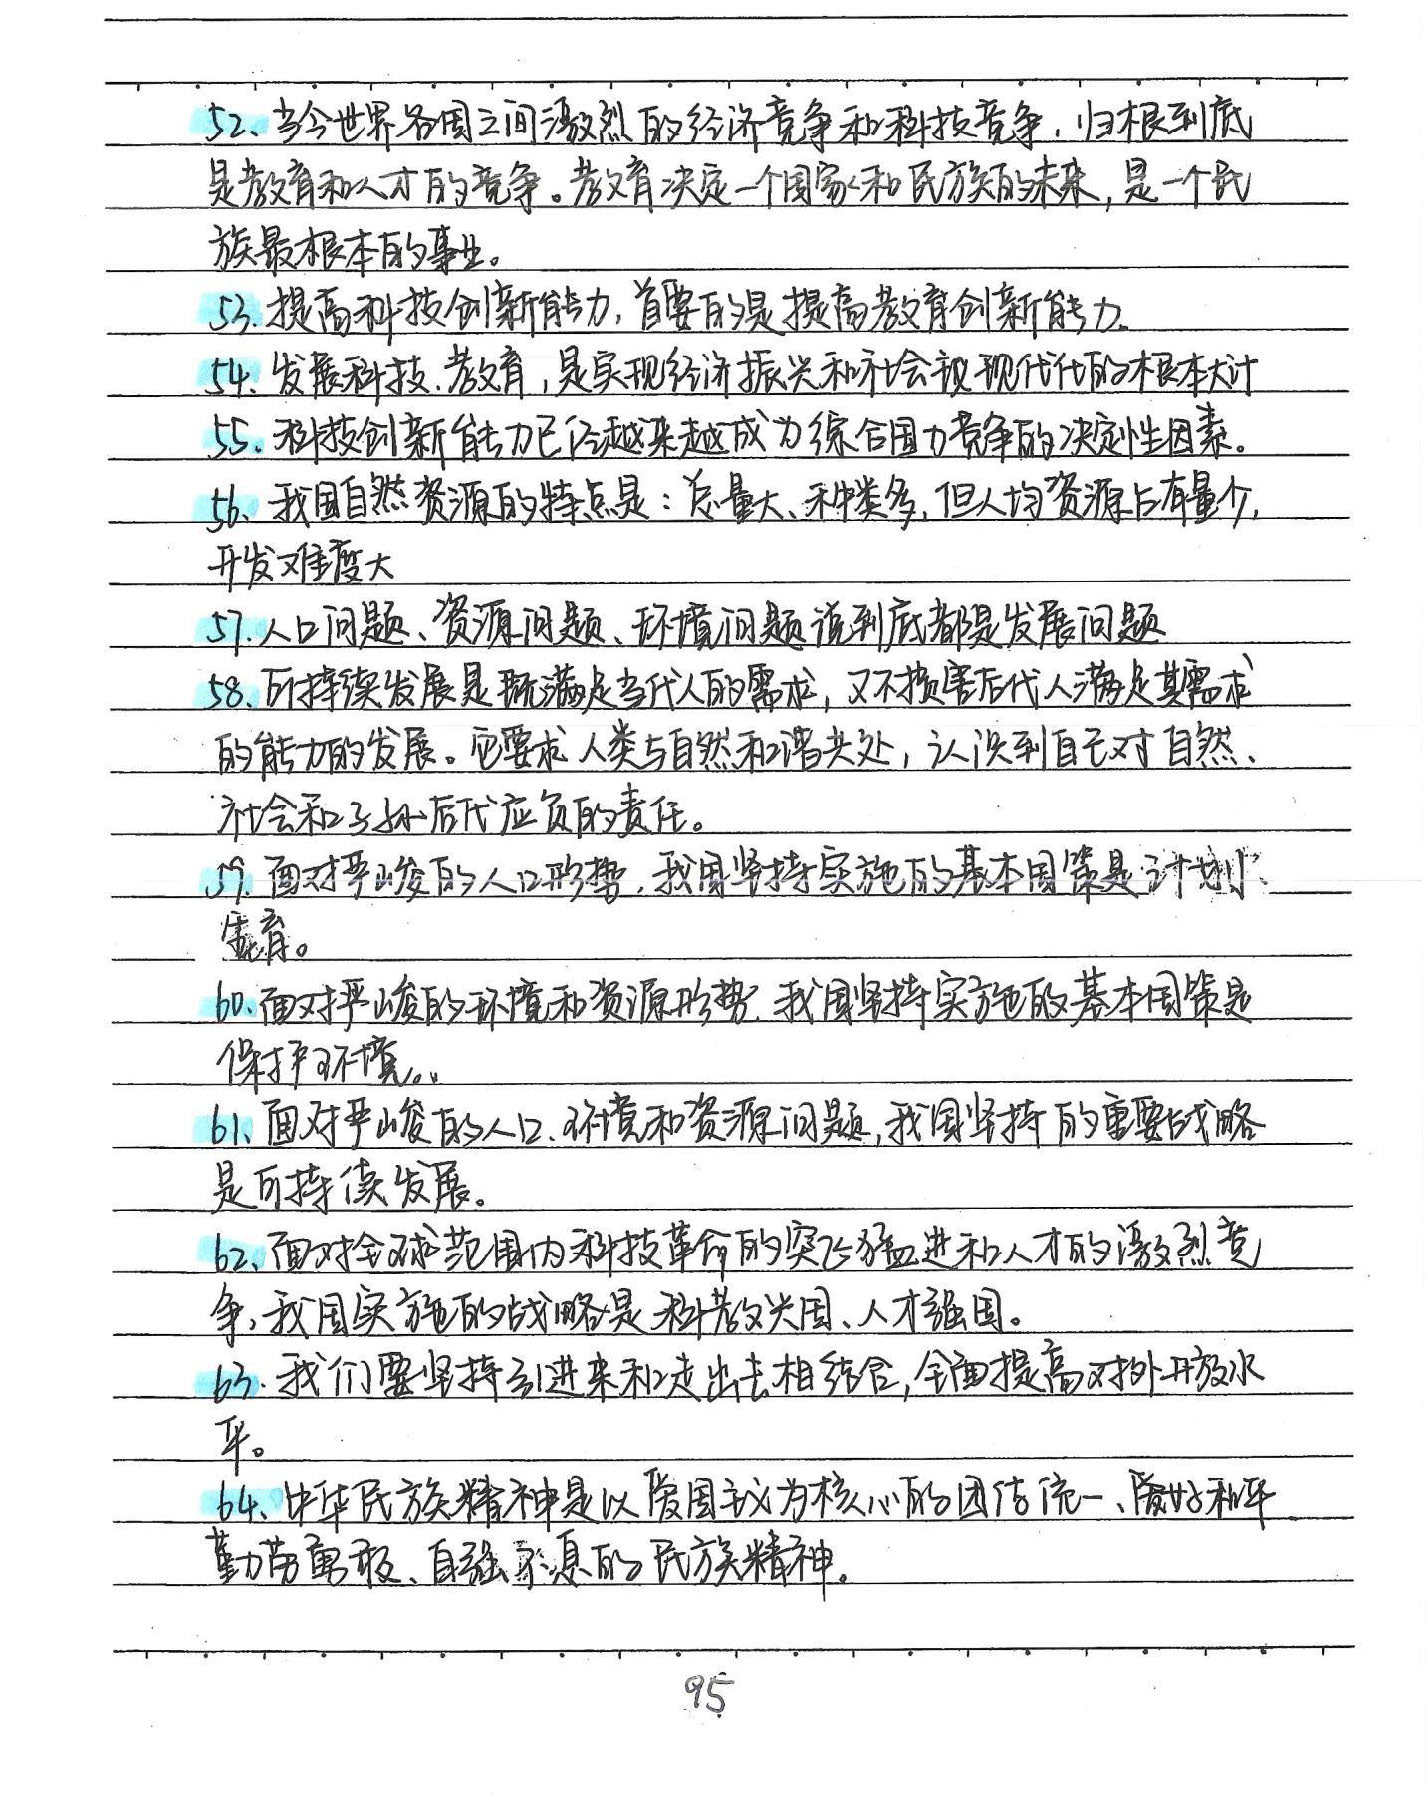 52、当今世界各国之间激烈的经济竞争和科技竞争，归根到底
是教育和人才的竞争。教育决定一个国家和民族的未来，是一个民
族最根本的事业。
53.提高科技创新能力，首要的是提高教育创新能力。
54、发展科技、教育，是实现经济振兴和社会现代化的根本大计
55、科技创新能力已经越来越成为综合国力竞争的决定性因素。
56、我国自然资源的特点是：总量大、种类多，但人均资源占有量少，
开发难度大
57.人口问题、资源问题、环境问题说到底都是发展问题
58、可持续发展是既满足当代人的需求，又不损害后代人满足其需求
的能力的发展。它要求人类与自然和谐共处，认识到自己对自然、
社会和子孙后代应负的责任。
59.面对严峻的人口形势，我国坚持实施的基本国策是计划
生育。
60、面对严峻的环境和资源形势，我国坚持实施的基本国策是
保护环境。
61、面对严峻的人口、环境和资源问题，我国坚持的重要战略
是可持续发展。
62、面对全球范围内科技革命的突飞猛进和人才的激烈竞
争，我国实施的战略是科教兴国、人才强国。
63、我们要坚持引进来和走出去相结合，全面提高对外开放水
平。
64、中华民族精神是以爱国主义为核心的团结统一、爱好和平
勤劳勇敢、自强不息的民族精神。
95